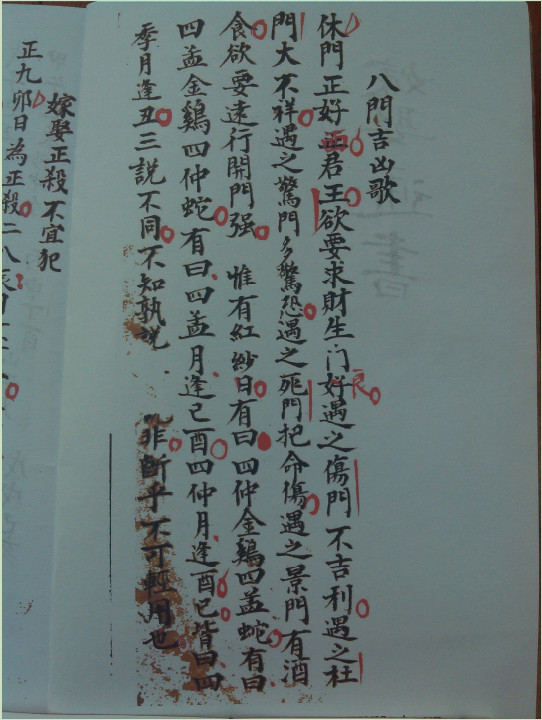 八門吉凶歌
休門正好正君王欲要求財生門好良遇之傷門不吉利遇之杜
門大不祥遇之驚門多驚恐遇之死門把命傷遇之景門有酒
食欲要遠行開門强 惟有紅紗日有曰四仲金鷄四孟蛇有曰
四孟金鷄四仲蛇有曰四孟月逢巳酉四仲月逢酉巳皆曰四
季月逢丑三説不同不知孰説 非斷乎不可輕用也
嫁娶正殺不宜犯
正九卯日為正殺二八辰日